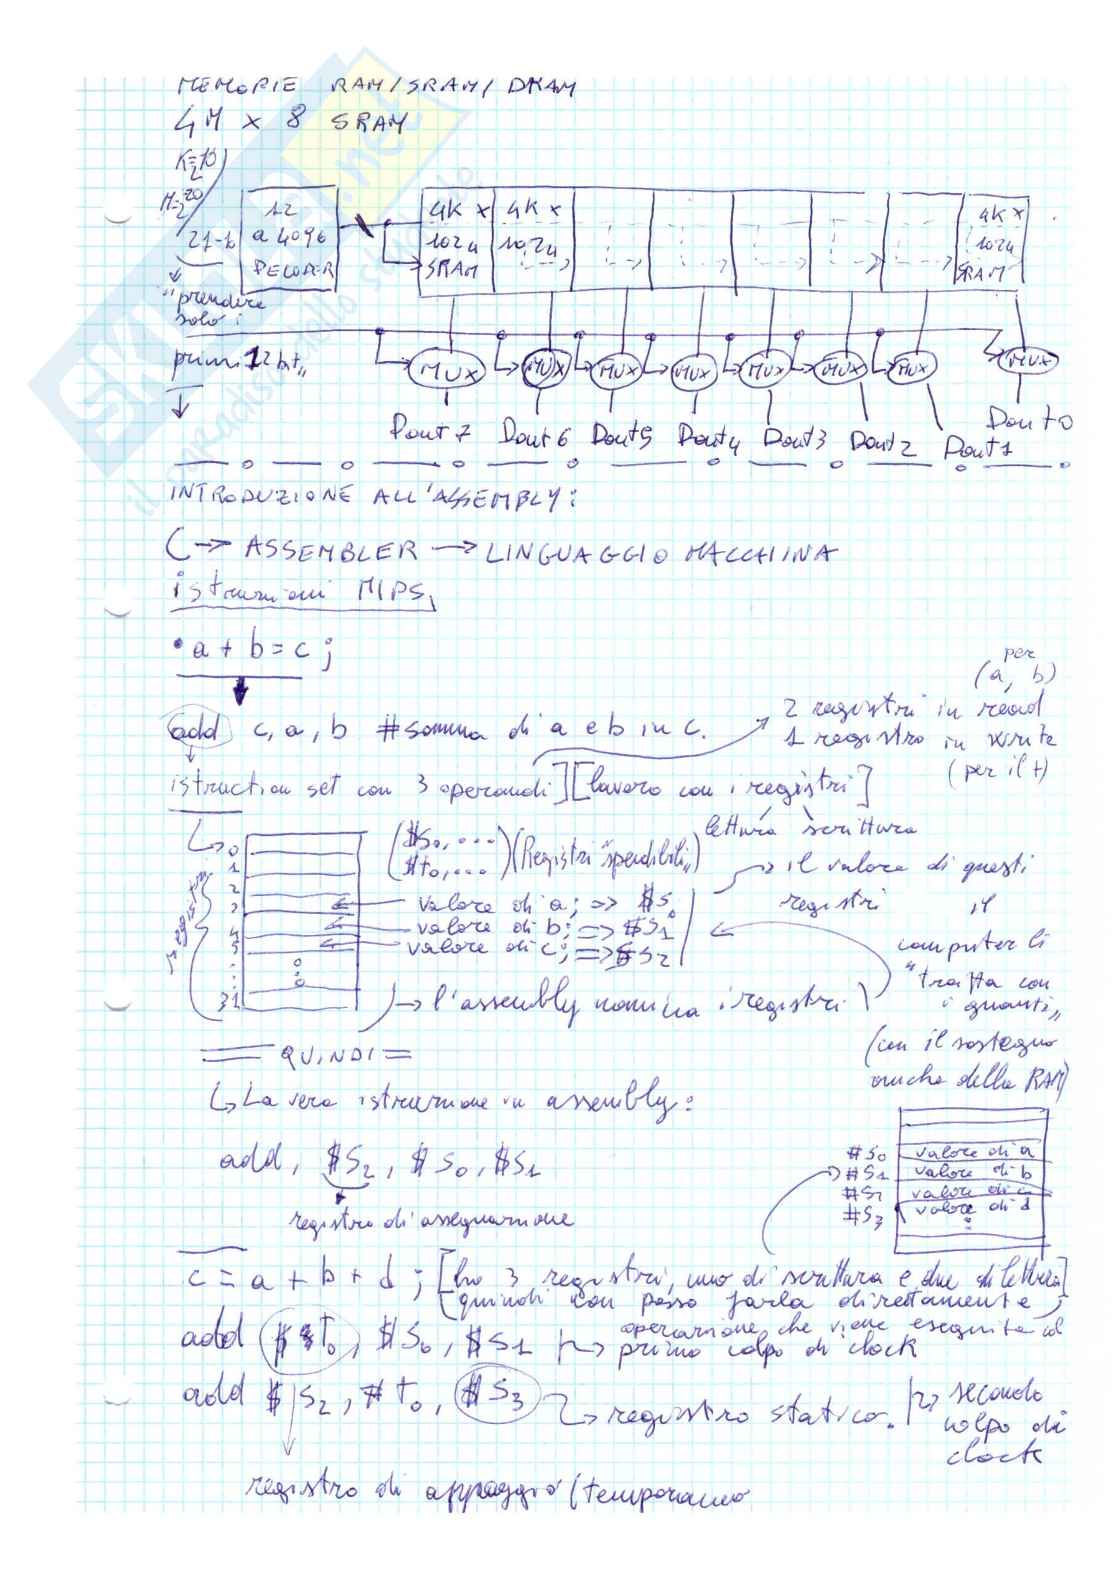 MEMORIE RAM/SRAM/DRAM
4M x 8 SRAM
K=2^10
M=2^20
21-12
12
a 4096
DECODER
4K x
1024
SRAM
4K x
1024
4K x
1024
SRAM
"prendere
solo i
primi 12 bit"
MUX MUX MUX MUX MUX MUX MUX MUX
Dout7 Dout6 Dout5 Dout4 Dout3 Dout2 Dout1 Dout0
INTRODUZIONE ALL'ASSEMBLY:
C → ASSEMBLER → LINGUAGGIO MACCHINA
istruzioni MIPS,
• a + b = c ;
add c, a, b #somma di a e b in c.
per
(a, b)
2 registri in read
1 registro in write
(per il t)
istruction set con 3 operandi][lavoro con i registri]
lettura scrittura
0
1
2
3
4
5
31
($s0,...
$t0,...)
(Registri "spendibili")
valore di a; => $s0
valore di b; => $S1
valore di c; => $S2
il valore di questi
registri il
computer li
"tratta con
i quanti"
(con il sostegno
anche della RAM)
→ l'assembly nomina i registri
= QUINDI =
↳ La vera istruzione in assembly:
add, $S2, $S0, $S1
registro di assegnazione
#S0 valore di a
#S1 valore di b
#S2 valore di c
#S3 valore di d
c = a + b + d ; [ho 3 registri, uno di scrittura e due di lettura]
quindi non posso farla direttamente ;
add $t0, $S0, $S1 → operazione che viene eseguita col
primo colpo di clock
add $S2, #t0, $S3 → registro statico. → secondo
colpo di
clock
registro di appoggio (temporaneo